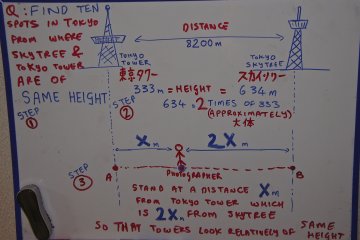 Q: FIND TEN
SPOTS IN TOKYO
FROM WHERE
SKYTREE &
TOKYO TOWER
ARE OF
SAME HEIGHT
DISTANCE
8200m
TOKYO
TOWER
東京タワー
TOKYO
SKYTREE
スカイツリー
333m = HEIGHT = 634m
634 = 2 TIMES OF 333
(APPROXIMATELY)
大体
STEP
①
STEP
②
Xm
2Xm
STEP
③
A
B
PHOTOGRAPHER
STAND AT A DISTANCE Xm
FROM TOKYO TOWER WHICH
IS 2Xm FROM SKYTREE
SO THAT TOWERS LOOK RELATIVELY OF SAME
HEIGHT